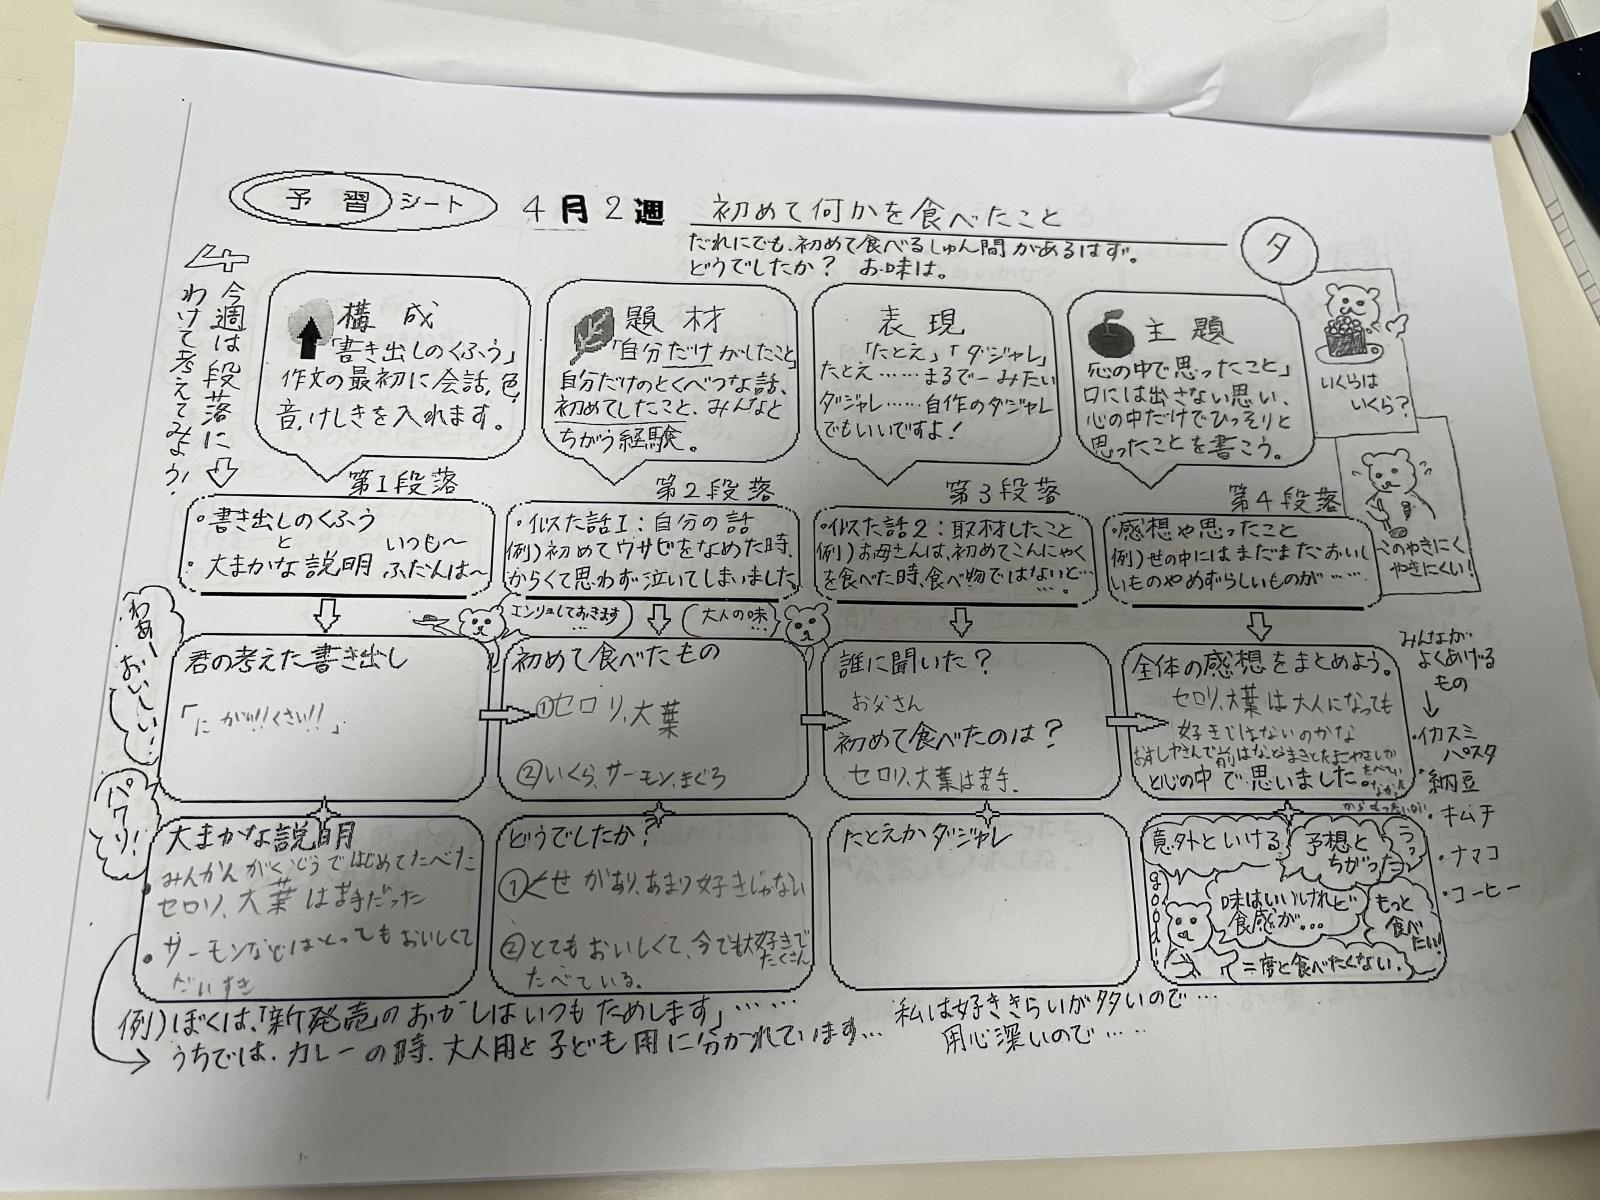 予習シート
4月2週 初めて何かを食べたこと
だれにでも、初めて食べるしゅん間があるはず。
どうでしたか? お味は。
タ
今週は段落に
わけて考えてみよう!
構成
「書き出しのくふう」
作文の最初に会話、色、
音、けしきを入れます。
題材
「自分だけがしたこと」
自分だけのとくべつな話、
初めてしたこと、みんなと
ちがう経験。
表現
「たとえ」「ダジャレ」
たとえ……まるで〜みたい
ダジャレ……自作のダジャレ
でもいいですよ!
主題
心の中で思ったこと」
口には出さない思い、
心の中だけでひっそりと
思ったことを書こう。
いくらは
いくら?
このやきにく
やきにくい!
第1段落
・書き出しのくふう
と
・大まかな説明
いつも〜
ふだんは〜
第2段落
・似た話1:自分の話
例)初めてワサビをなめた時、
からくて思わず泣いてしまいました。
第3段落
・似た話2:取材したこと
例)お母さんは、初めてこんにゃく
を食べた時、食べ物ではないと…
…。
第4段落
・感想や思ったこと
例)世の中にはまだまだおいし
いものやめずらしいものが……
わあー
おいしい!
パクリ!
エンリョしておきます
…
大人の味…
君の考えた書き出し
「にがい!!くさい!!」
初めて食べたもの
①セロリ、大葉
②いくら、サーモン、まぐろ
誰に聞いた?
お父さん
初めて食べたのは?
セロリ、大葉は苦手.
全体の感想をまとめよう。
セロリ、大葉は大人になっても
好きではないのかな
と心の中で思いました。
みんなが
よくあげる
もの
・イカスミ
パスタ
・納豆
・キムチ
・ナマコ
・コーヒー
大まかな説明
・みんかんがくどうではじめてたべた
セロリ、大葉は苦手だった
・サーモンなどはとってもおいしくて
だいすき
どうでしたか?
①くせがあり、あまり好きじゃない
②とてもおいしくて、今でも大好きで
たくさん
たべている。
たとえかダジャレ
意外といける
予想と
ちがった
うっ
good!
味はいいけれど
食感が…
もっと
食べたい!
二度と食べたくない.
例)ぼくは、「新発売」のおかしはいつもためします」……
うちでは、カレーの時、大人用と子ども用に分かれています…
私は好ききらいが多いので…
用心深いので……